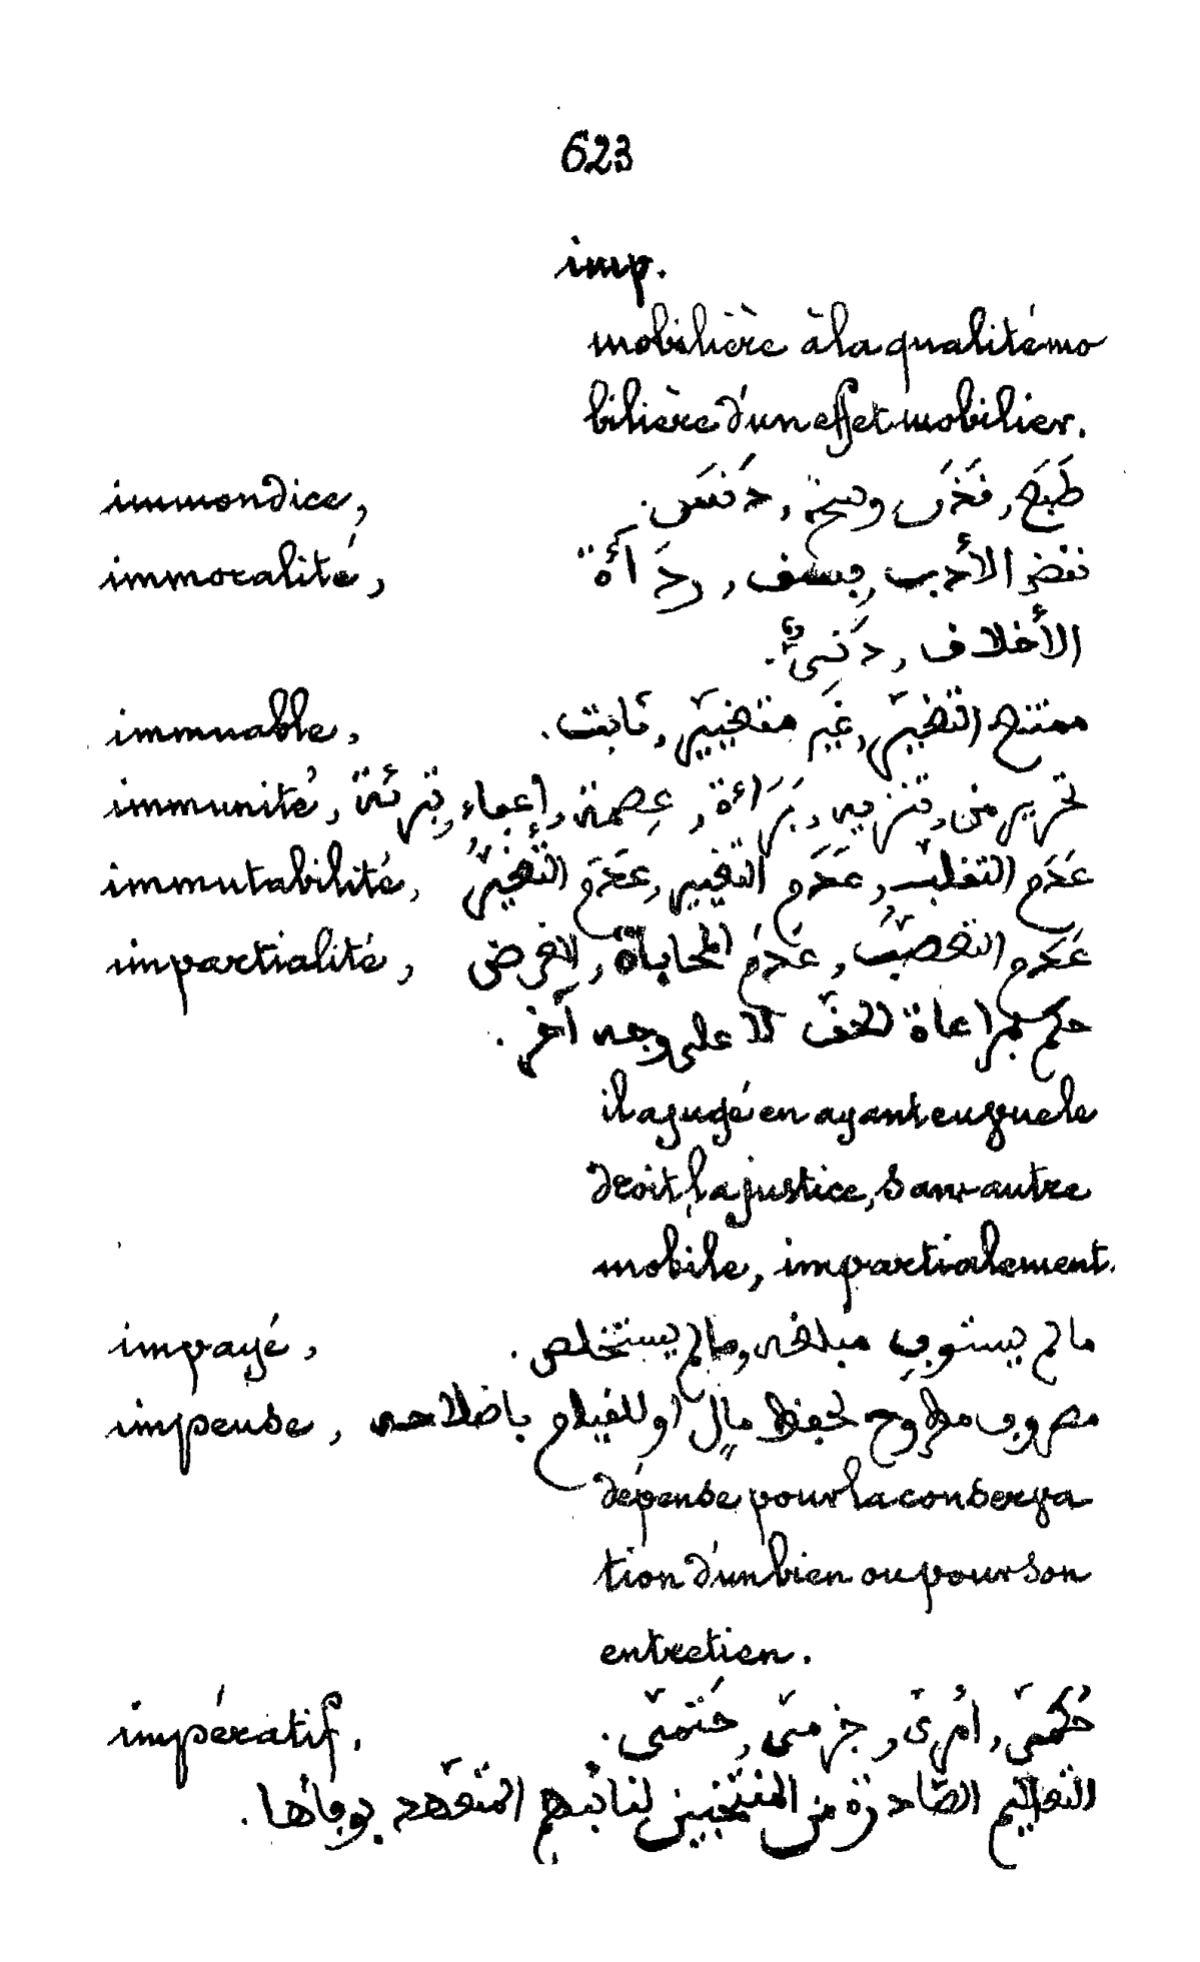 623
imp.
mobilière à la qualité mo
bilière d'un effet mobilier.
immondice, طَبَع, قَذَر, وسخة, دَنَس.
immoralité, نقض الأدب, فسق, ردَآأة
الأخلاق, دَنيءٌ.
immuable, ممتنع التغيّر, غَير متغيير, ثابت.
immunité, تحرير من, تنزيه, بَرَاءة, عِصمة, إعفاء, تبرئة
immutabilité, عَدَم التقلّب, عَدَم التغيير, عَدَم التَّغيّر
impartialité, عَدَم التعصّب, عَدَم المحاباة, لاغرض
حكم بمراعاة للحقّ لا على وجه آخر.
il a jugé en ayant eu que le
droit, la justice, sans autre
mobile, impartialement.
impayé, ما لم يستوفِ مبلغه, وما لم يستخلص.
impense, مصروف مطروح لحفظ مالٍ او للقيام باصلاحه
dépense pour la conserva
tion d'un bien ou pour son
entretien.
impératif, حُكميّ, أمْريّ, جزميّ, حَتميّ.
التعاليم الصّادرة من المنتخبين لنائبهم المتعهّد بوفائها.